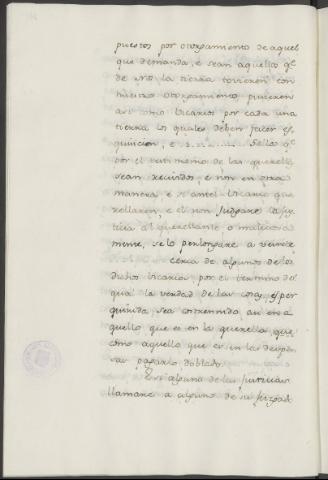 puestos por otorgamiento de aquel
que demanda, e sean aquellos qe
de Nos la tierra tovieren con
nuestro otorgamiento pusieren
asi como vicarios por cada una
tierra los quales deben facer es
quisicion, e s........ Sellos qe
por el testimonio de las querellas
sean recividos, e non en otra
manera, e si antel vicario que
rellaren, e el non juzgare la jus
ticia al querellante o maliciosa
mente, se lo perlongare a veinte
cerca de algunos de los
dichos vicarios, por el termino del
qual la verdad de las cosas, es per
quirida, sea costrennido, asi en a
quello que es en la querella, que
como aquello que es en las despen
sas pagarlo doblado.
E si alguno de las justicias
llamare a alguno de su juzgad